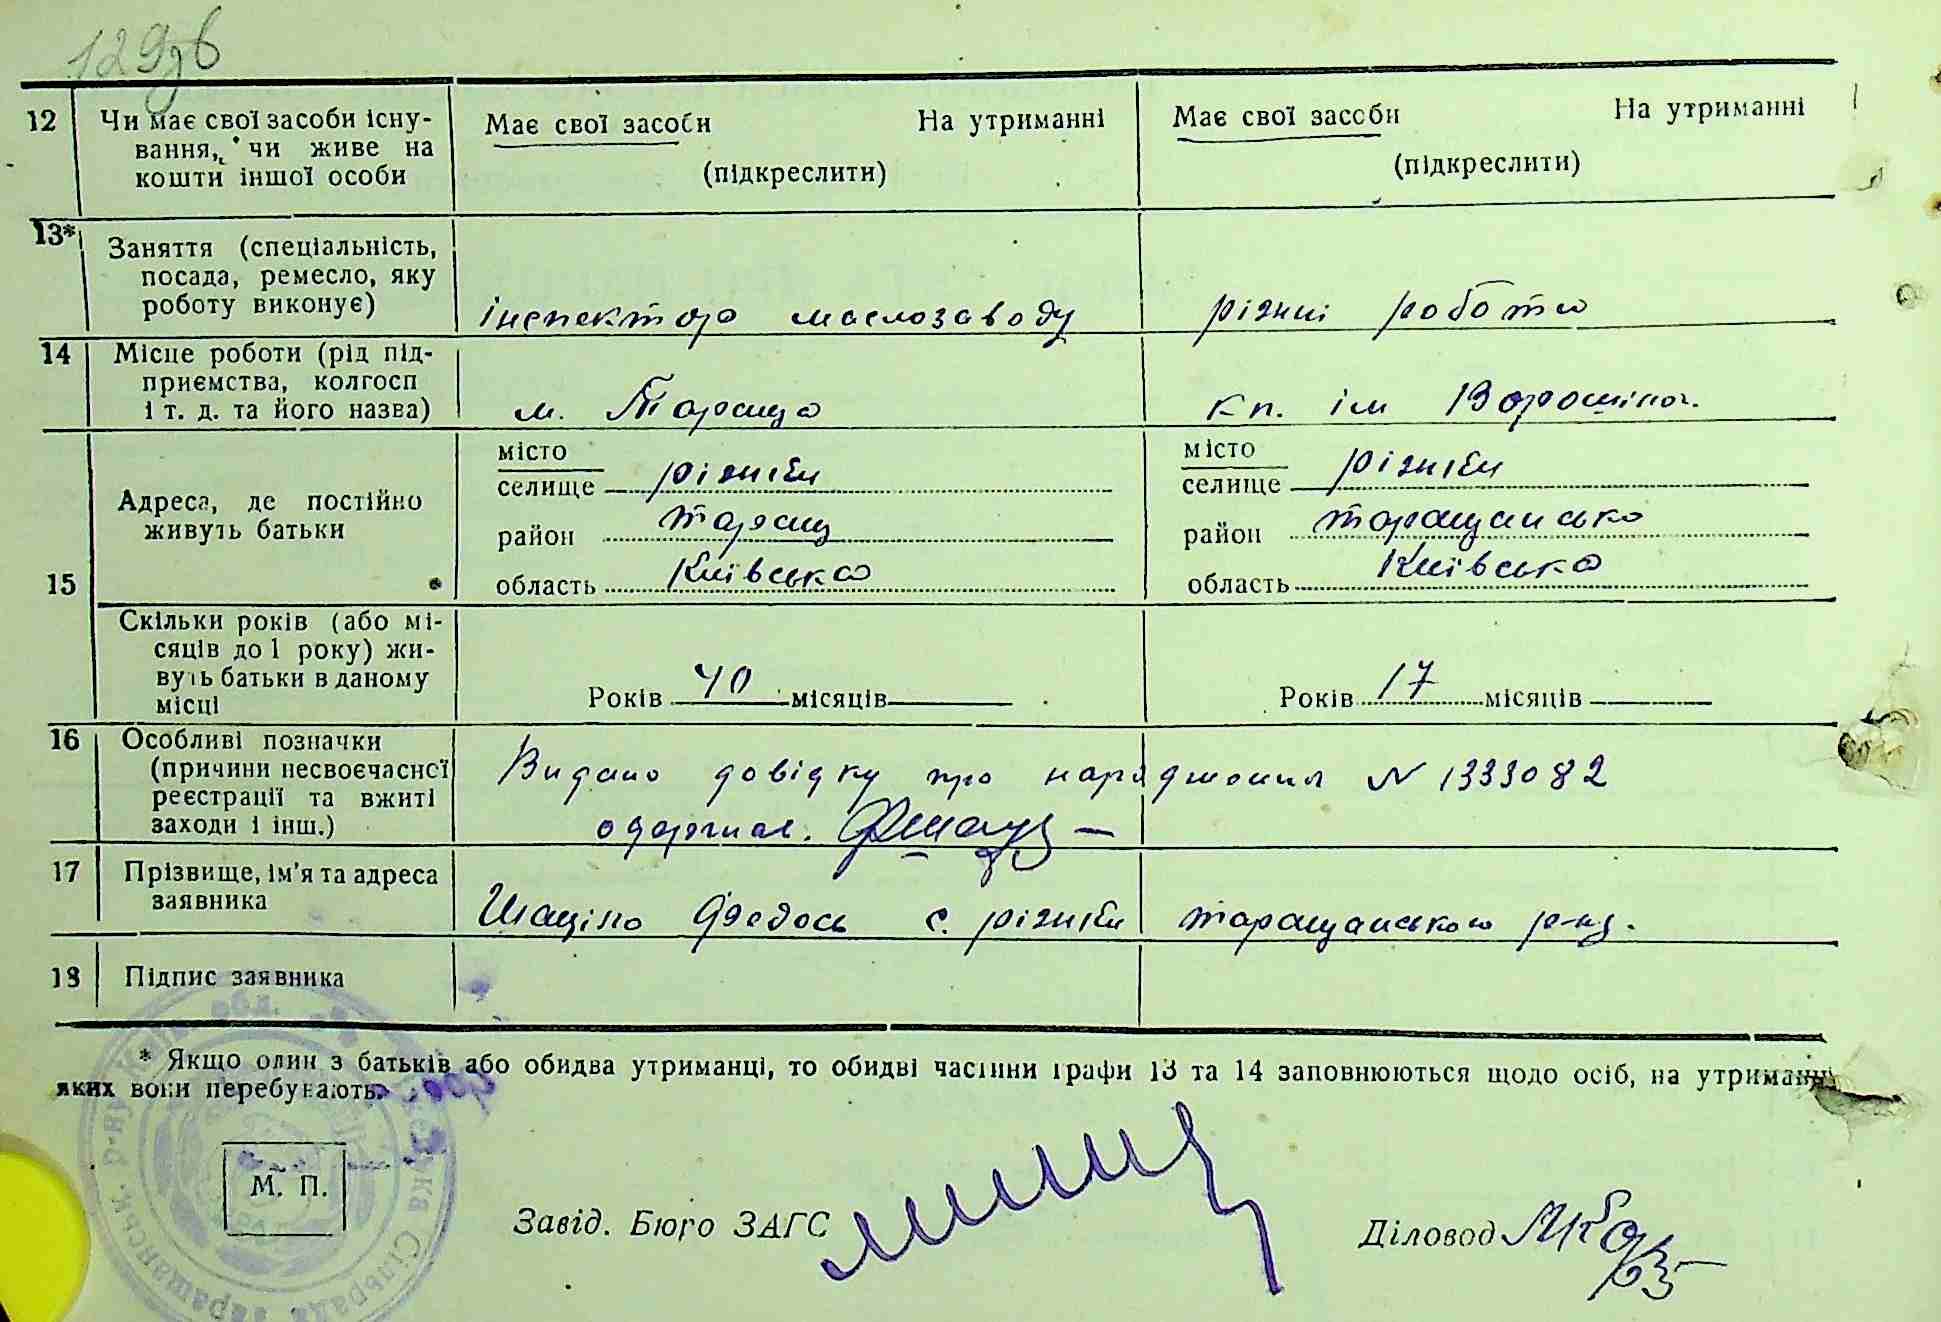 129зв
12 Чи має свої засоби існу-
вання, чи живе на
кошти іншої особи
Має свої засоби На утриманні
(підкреслити)
Має свої засоби На утриманні
(підкреслити)
13* Заняття (спеціальність,
посада, ремесло, яку
роботу виконує)
інспектор маслозаводу
різні роботи
14 Місце роботи (рід під-
приємства, колгосп
і т. д. та його назва)
м. Тараща
кп. ім Ворошилог.
15 Адреса, де постійно
живуть батьки
місто
селище різники
район таращ
область Київська
місто
селище різники
район таращансько
область Київська
Скільки років (або мі-
сяців до 1 року) жи-
вуть батьки в даному
місці
Років 40 місяців
Років 17 місяців
16 Особливі позначки
(причини несвоєчасної
реєстрації та вжиті
заходи і інш.)
Видано довідку про народження N 1333082
одержал.
17 Прізвище, ім'я та адреса
заявника
Шаціло Федось с. різники таращанського р-ну.
18 Підпис заявника
* Якщо один з батьків або обидва утриманці, то обидві частини графи 13 та 14 заповнюються щодо осіб, на утриманні
яких вони перебувають.
М. П.
Завід. Бюро ЗАГС
Діловод